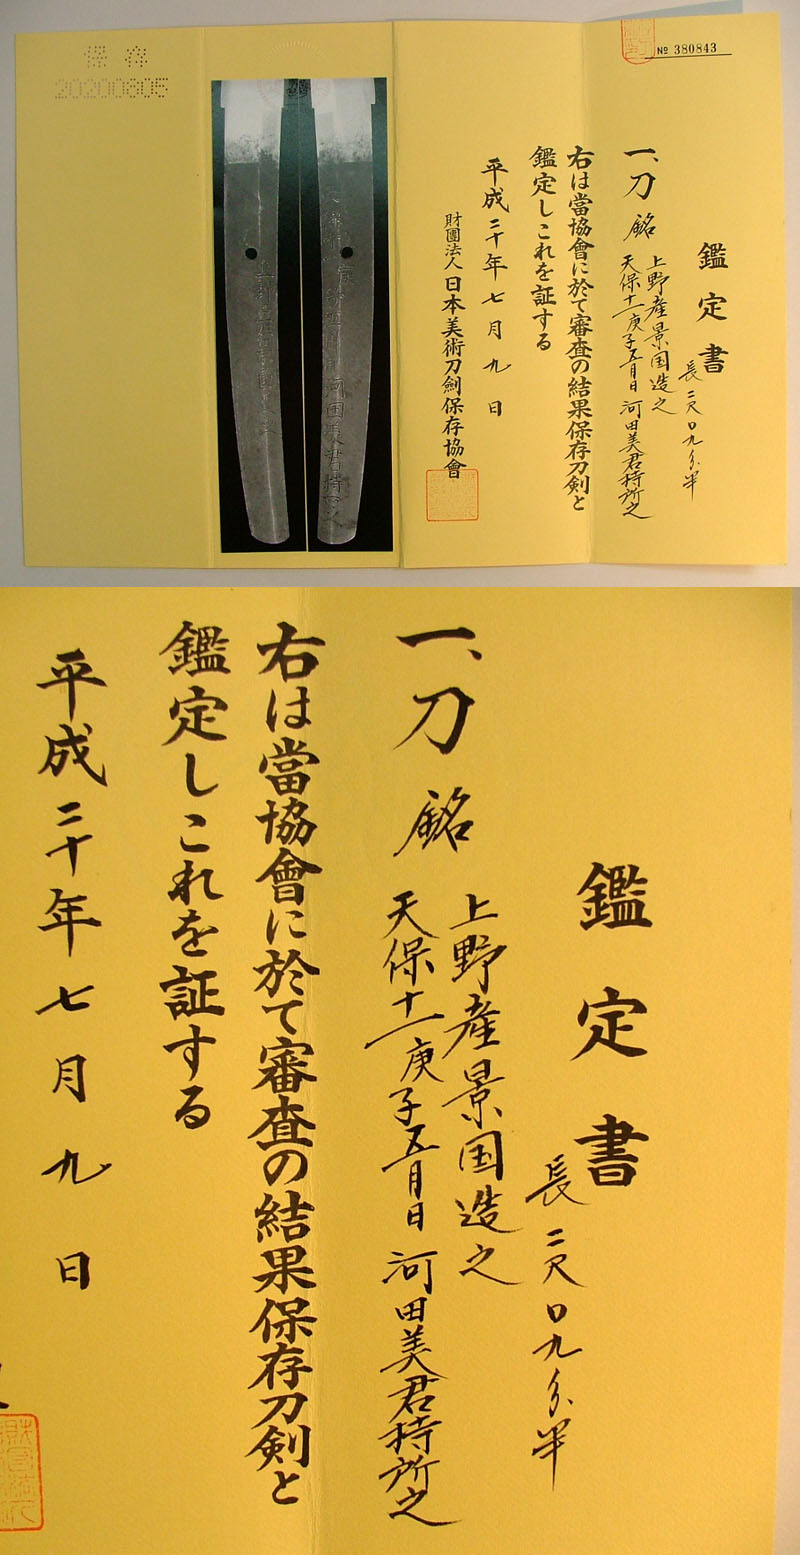 保存
20200805
№ 380843
鑑定書
長二尺〇九分半
一、刀 銘
上野産景国造之
天保十一庚子五月日 河田美君持所之
右は當協會に於て審査の結果保存刀剣と
鑑定しこれを証する
平成二十年七月九日
財團法人日本美術刀劍保存協會
鑑定書
長二尺〇九分半
一、刀 銘
上野産景国造之
天保十一庚子五月日 河田美君持所之
右は當協會に於て審査の結果保存刀剣と
鑑定しこれを証する
平成二十年七月九日